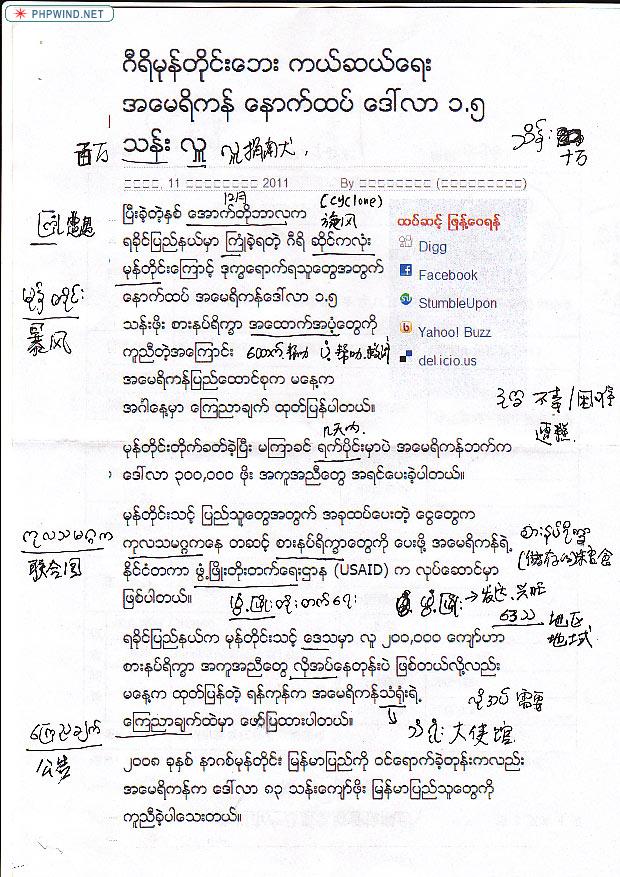 PHPWIND.NET
ဂီရိမုန်တိုင်းဘေး ကယ်ဆယ်ရေး
အမေရိကန် နောက်ထပ် ဒေါ်လာ ၁.၅
百万 သန်း လှူ
သိန်း
十万
11 2011 By
12月 (cyclone)
旋风
ပြီးခဲ့တဲ့နှစ် အောက်တိုဘာလက
ကြုံ 遭遇
ရခိုင်ပြည်နယ်မှာ ကြုံခဲ့ရတဲ့ ဂီရိ ဆိုင်ကလုံး
မုန်တိုင်းကြောင့် ဒုက္ခရောက်ရသူတွေအတွက်
မုန်တိုင်း
暴风
နောက်ထပ် အမေရိကန်ဒေါ်လာ ၁.၅
သန်းဖိုး စားနပ်ရိက္ခာ အထောက်အပံ့တွေကို
ကူညီတဲ့အကြောင်း
အမေရိကန်ပြည်ထောင်စုက မနေ့က
အင်္ဂါနေ့မှာ ကြေညာချက် ထုတ်ပြန်ပါတယ်။
ထပ်ဆင့် ဖြန့်ဝေရန်
Digg
Facebook
StumbleUpon
Yahoo! Buzz
del.icio.us
ဒုက္ခ 不幸/困难
遭糕
几天内.
မုန်တိုင်းတိုက်ခတ်ခဲ့ပြီး မကြာခင် ရက်ပိုင်းမှာပဲ အမေရိကန်ဘက်က
ဒေါ်လာ ၃၀၀,၀၀၀ ဖိုး အကူအညီတွေ အရင်ပေးခဲ့ပါတယ်။
မုန်တိုင်းသင့် ပြည်သူတွေအတွက် အခုထပ်ပေးတဲ့ ငွေတွေက
ကုလသမဂ္ဂက
联合国
ကုလသမဂ္ဂကနေ တဆင့် စားနပ်ရိက္ခာတွေကို ပေးဖို့ အမေရိကန်ရဲ့
စားနပ်ရိက္ခာ
နိုင်ငံတကာ ဖွံ့ဖြိုးတိုးတက်ရေးဌာန (USAID) က လုပ်ဆောင်မှာ
ဖြစ်ပါတယ်။
ဖွံ့ဖြိုးတိုးတက်ရေး
ဖွံ့ဖြိုး → 发达. 兴旺
ဒေသ 地区
地域
ရခိုင်ပြည်နယ်က မုန်တိုင်းသင့် ဒေသမှာ လူ ၂၀၀,၀၀၀ ကျော်ဟာ
စားနပ်ရိက္ခာ အကူအညီတွေ လိုအပ်နေတုန်းပဲ ဖြစ်တယ်လို့လည်း
မနေ့က ထုတ်ပြန်တဲ့ ရန်ကုန်က အမေရိကန်သံရုံးရဲ့
လိုအပ် 需要
ကြေညာချက်ထဲမှာ ဖော်ပြထားပါတယ်။
သံရုံး 大使馆
ကြေညာချက်
公告
၂၀၀၈ ခုနှစ် နာဂစ်မုန်တိုင်း မြန်မာပြည်ကို ဝင်ရောက်ခဲ့တုန်းကလည်း
အမေရိကန်က ဒေါ်လာ ၈၃ သန်းကျော်ဖိုး မြန်မာပြည်သူတွေကို
ကူညီခဲ့ပါသေးတယ်။